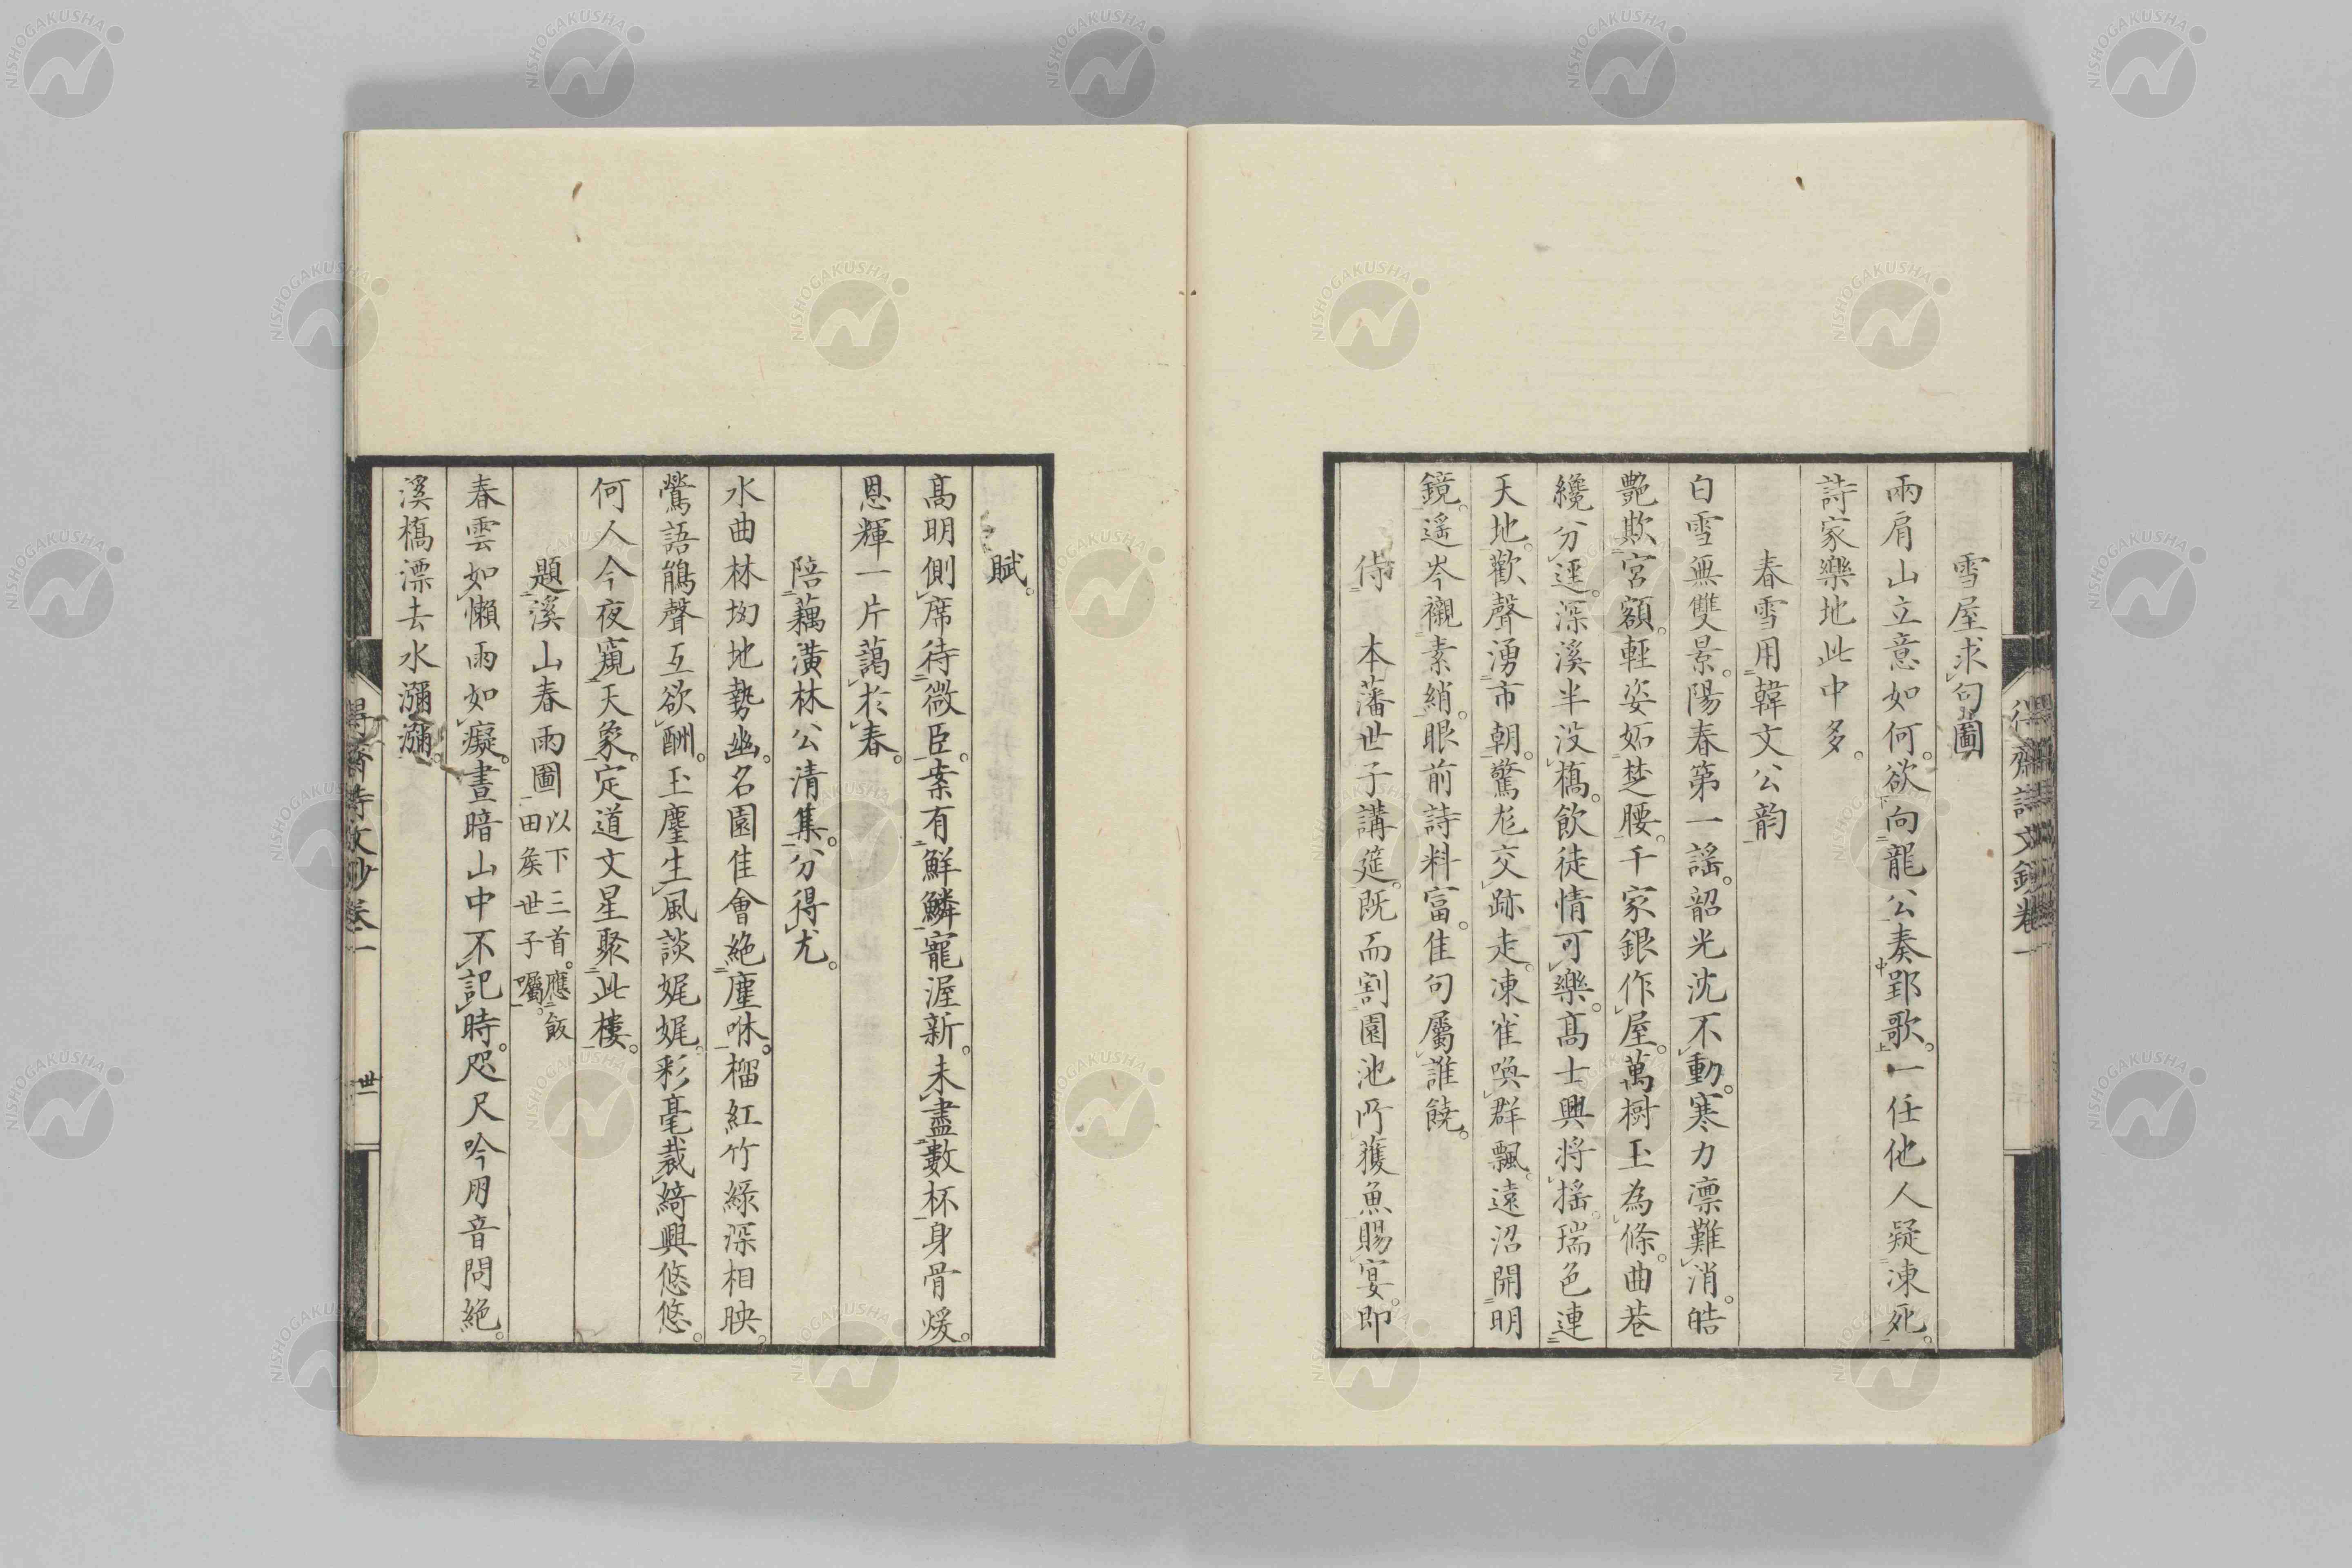 雪屋求句圖
兩肩山立意如何。欲向龍公奏郢歌。一任他人疑凍死。
詩家樂地此中多。
春雪用韓文公韵
白雪無雙景。陽春第一謠。韶光沈不動。寒力凛難消。皓
艷欺宮額。輕姿妬楚腰。千家銀作屋。萬樹玉為條。曲巷
纔分逕。深溪半没橋。飲徒情可樂。高士興將搖。瑞色連
天地。歡聲湧市朝。驚尨交跡走。凍雀喚群飄。遠沼開明
鏡。遥岑襯素綃。眼前詩料富。佳句屬誰饒。
侍 本藩世子講筵。既而割園池所獲魚賜宴。即
賦。
高明側席待微臣。案有鮮鱗寵渥新。未盡數杯身骨煖。
恩輝一片藹於春。
陪藕潢林公清集。分得尤。
水曲林坳地勢幽。名園佳會絶塵咻。榴紅竹綠深相映。
鶯語鵑聲互欲酬。玉麈生風談娓娓。彩毫裁綺興悠悠。
何人今夜窺天象。定道文星聚此樓。
題溪山春雨圖 以下三首。應飯
田矦世子囑。
春雲如懶雨如癡。晝暗山中不記時。咫尺吟朋音問絶。
溪橋漂去水瀰瀰。
卷一
世
NISHOGAKUSHA